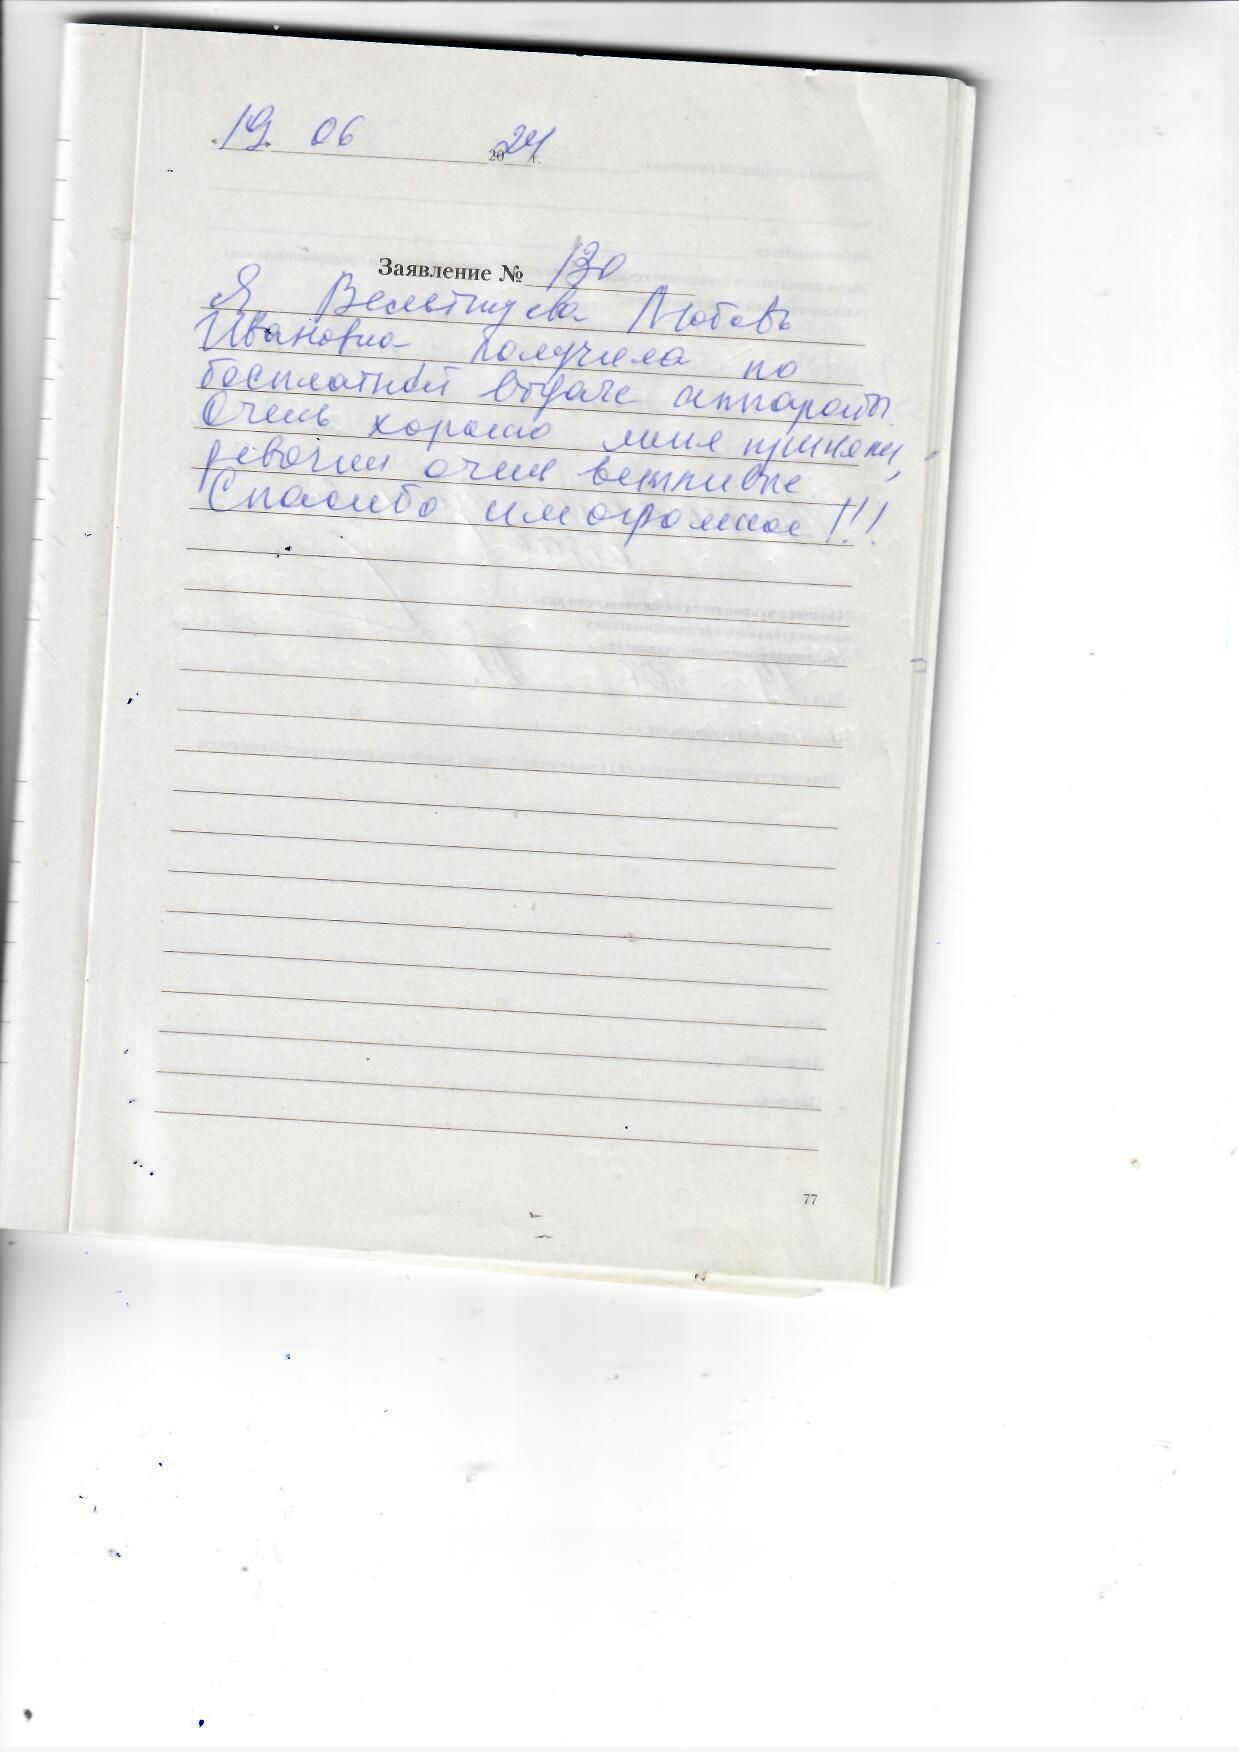 «19» 06 2024 г.
Заявление № 130
Я Любовь
Ивановна получила по
бесплатной выдаче аппараты.
Очень хорошо меня приняли,
девочки очень вежливые.
Спасибо им огромное!!!
77